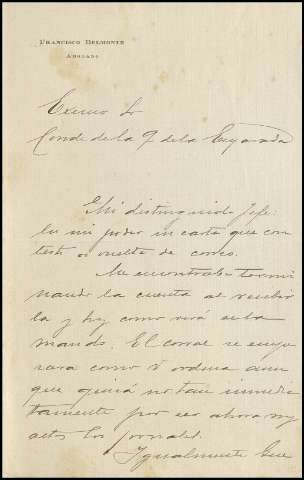 FRANCISCO BELMONTE
ABOGADO
Excmo Sr
Conde de la
Mi distinguido Jefe:
en mi poder su carta que con
testo a vuelta de correo.
Me encontraba termi
nando la cuenta al recibir
la y hoy como verá se la
mando. El corral se
rará como V ordena aun
que quizá no tan inmedia
tamente por ser ahora muy
altos los jornales.
Igualmente que